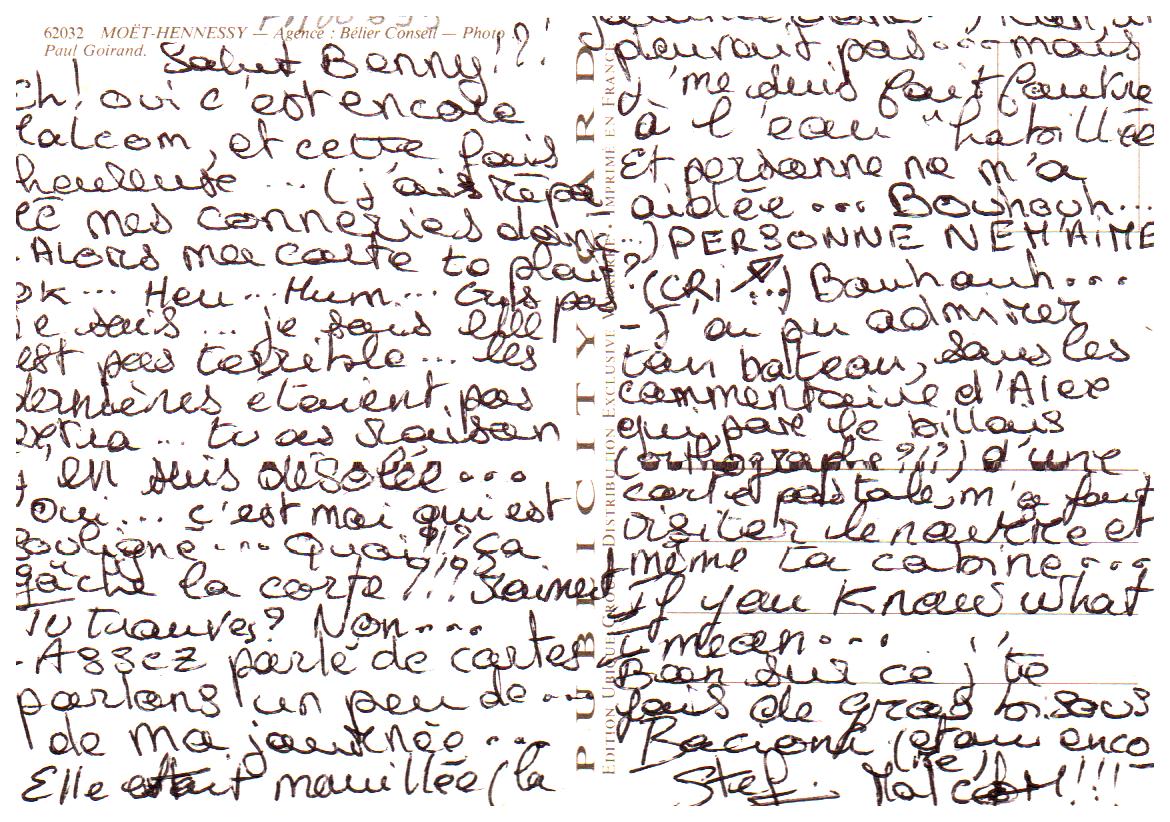 62032 MOËT-HENNESSY — Agence : Bélier Conseil — Photo
Paul Goirand.
Salut Benny!?!
ch! oui c'est encore
alcom, et cette fois
heureuse ... (j'ais répa
ré mes conneries donc...)
- Alors ma carte te plait?
OK... Heu... Hum... pas
je sais... je sais elle
est pas terrible... les
dernières étaient pas
extra... tu as raison
j'en suis désolée...
Oui... c'est moi qui est
souligné... Quoi?!? ça
gâche la carte?!? vraiment
Tu trouves? Non....
- Assez parlé de cartes
parlons un peu de...
de ma journée...
Elle était mouillée (la
devrait pas... mais
j'me suis fait foutre
à l'eau "habillée
Et personne ne m'a
aidée... Bouhouh...
PERSONNE NE M'AIME
(CRI ...) Bouhouh...
- J'ai pu admirer
ton bateau, sous les
commentaire d'Alex
qui, pare le billais
(orthographe?!?) d'une
carte postale, m'a fait
visiter le navire et
même ta cabine...
If you know what
I mean...
Bon sur ce j'te
fais de gros bisous
(et oui enco
(re)
Stef. Malcom!!!
PUBLICITY CARD
EDITION DISTRIBUTION EXCLUSIVE IMPRIMÉ EN FRANCE